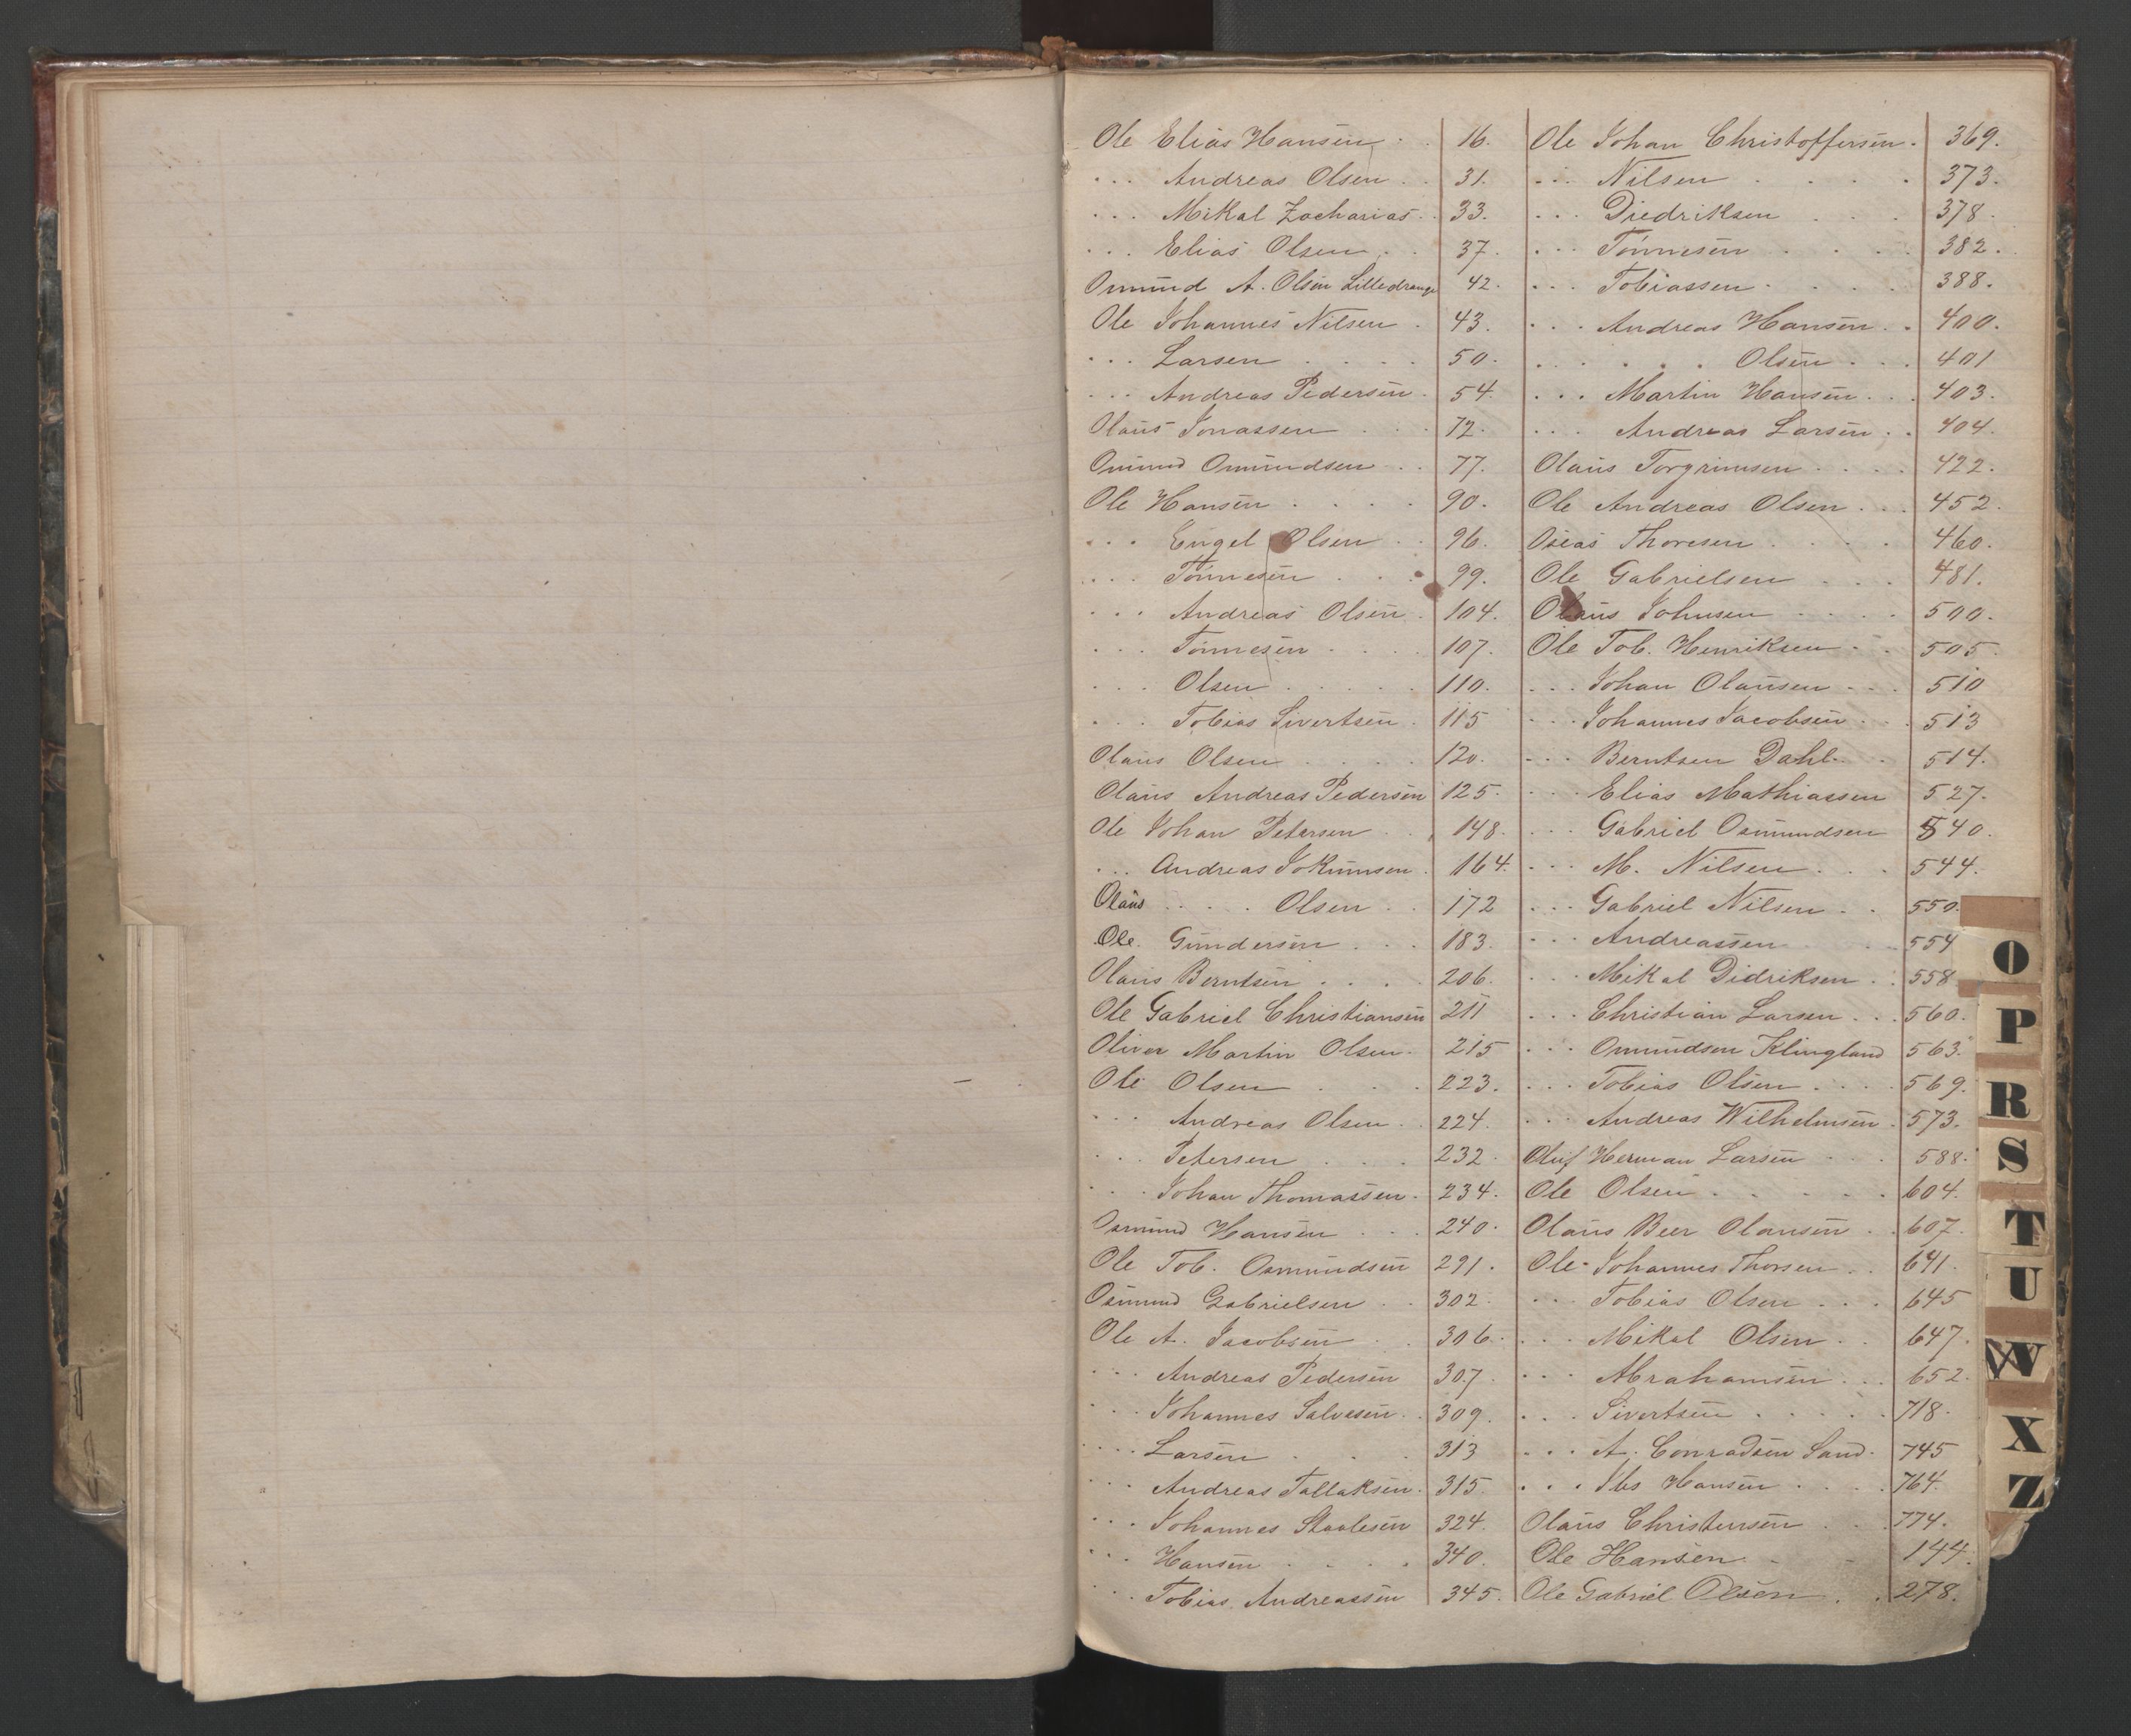 Ole Elias Hansen . . 16.
. . . Andreas Olsen . . 31.
. . . Mikal Zacharias . . 33.
. . . Elias Olsen . . 37.
Omund A. Olsen Lilledrange 42.
Ole Johannes Nilsen . 43.
. . . Larsen . . . . 50.
. . . Andreas Pedersen . 54.
Olaus Jonassen . . . 72.
Omund Omundsen . . 77.
Ole Hansen . . . . 90.
. . . Engel Olsen . . 96.
. . . Tönnesen . . . 99.
. . . Andreas Olsen . 104.
. . . Tönnesen . . . . 107.
. . . Olsen . . . . . 110.
. . . Tobias Sivertsen . 115
Olaus Olsen . . . . 120.
Olaus Andreas Pedersen 125.
Ole Johan Petersen . . 148.
. . . Andreas Jokumsen . 164.
Olaus . . . . Olsen . . 172
Ole Gundersen . . . 183.
Olaus Berntsen . . . . 206.
Ole Gabriel Christiansen 211
Oliver Martin Olsen . 215
Ole Olsen . . . 223.
. . . Andreas Olsen . . 224.
. . . Petersen . . . 232.
. . . Johan Thomassen . 234.
Osmund Hansen . . . 240.
Ole Tob. Osmundsen 291.
Osmund Gabrielsen . . 302.
Ole A. Jacobsen . . 306.
. . . Andreas Pedersen 307.
. . . Johannes Salvesen . . 309.
. . . Larsen . . . 313
. . . Andreas Tallaksen . 315.
. . . Johannes Staalesen 324.
. . . Hansen . . . . 340.
. . . Tobias Andreassen 345.
Ole Johan Christoffersen . 369.
. . . Nilsen . . . . 373.
. . . Diedriksen . . . 378.
. . . Tönnesen . . . . 382.
. . . Tobiassen . . . . 388.
. . . Andreas Hansen . . 400.
. . . . . . Olsen . . . 401
. . . Martin Hansen . . . 403.
. . . Andreas Larsen . . 404.
Olaus Torgrimsen . . . . 422.
Ole Andreas Olsen . . . 452.
Oseas Thoresen . . . . 460.
Ole Gabrielsen . . . 481.
Olaus Johnsen . . . . 500.
Ole Tob. Henriksen . . 505.
. . . Johan Olausen . . . 510
. . . Johannes Jacobsen . . 513
. . . Berntsen Dahl . . 514.
. . . Elias Mathiassen 527.
. . . Gabriel Osmundsen 540.
. . . M. Nilsen . . . 544.
. . . Gabriel Nilsen . . 550.
. . . Andreassen . . 554
. . . Mikal Didriksen . . 558
. . . Christian Larsen . . . 560.
. . . Omundsen Klingland 563.
. . . Tobias Olsen . . . . 569.
. . . Andreas Wilhelmsen . 573.
Oluf Herman Larsen . . . 588.
Ole Olsen . . . . . 604.
Olaus Beer Olausen . . 607.
Ole Johannes Thorsen . . 641.
. . . Tobias Olsen . . . 645
. . . Mikal Olsen . . 647.
. . . Abrahamsen . . . 652.
. . . Sivertsen . . . . . 718.
. . . A. Conradsen Sand . 745
. . . Ibs Hansen . . . . 764.
Olaus Christensen . . . 774.
Ole Hansen . . 144.
Ole Gabriel Olsen . . 278.
O
P
R
S
T
U
W
X
Z